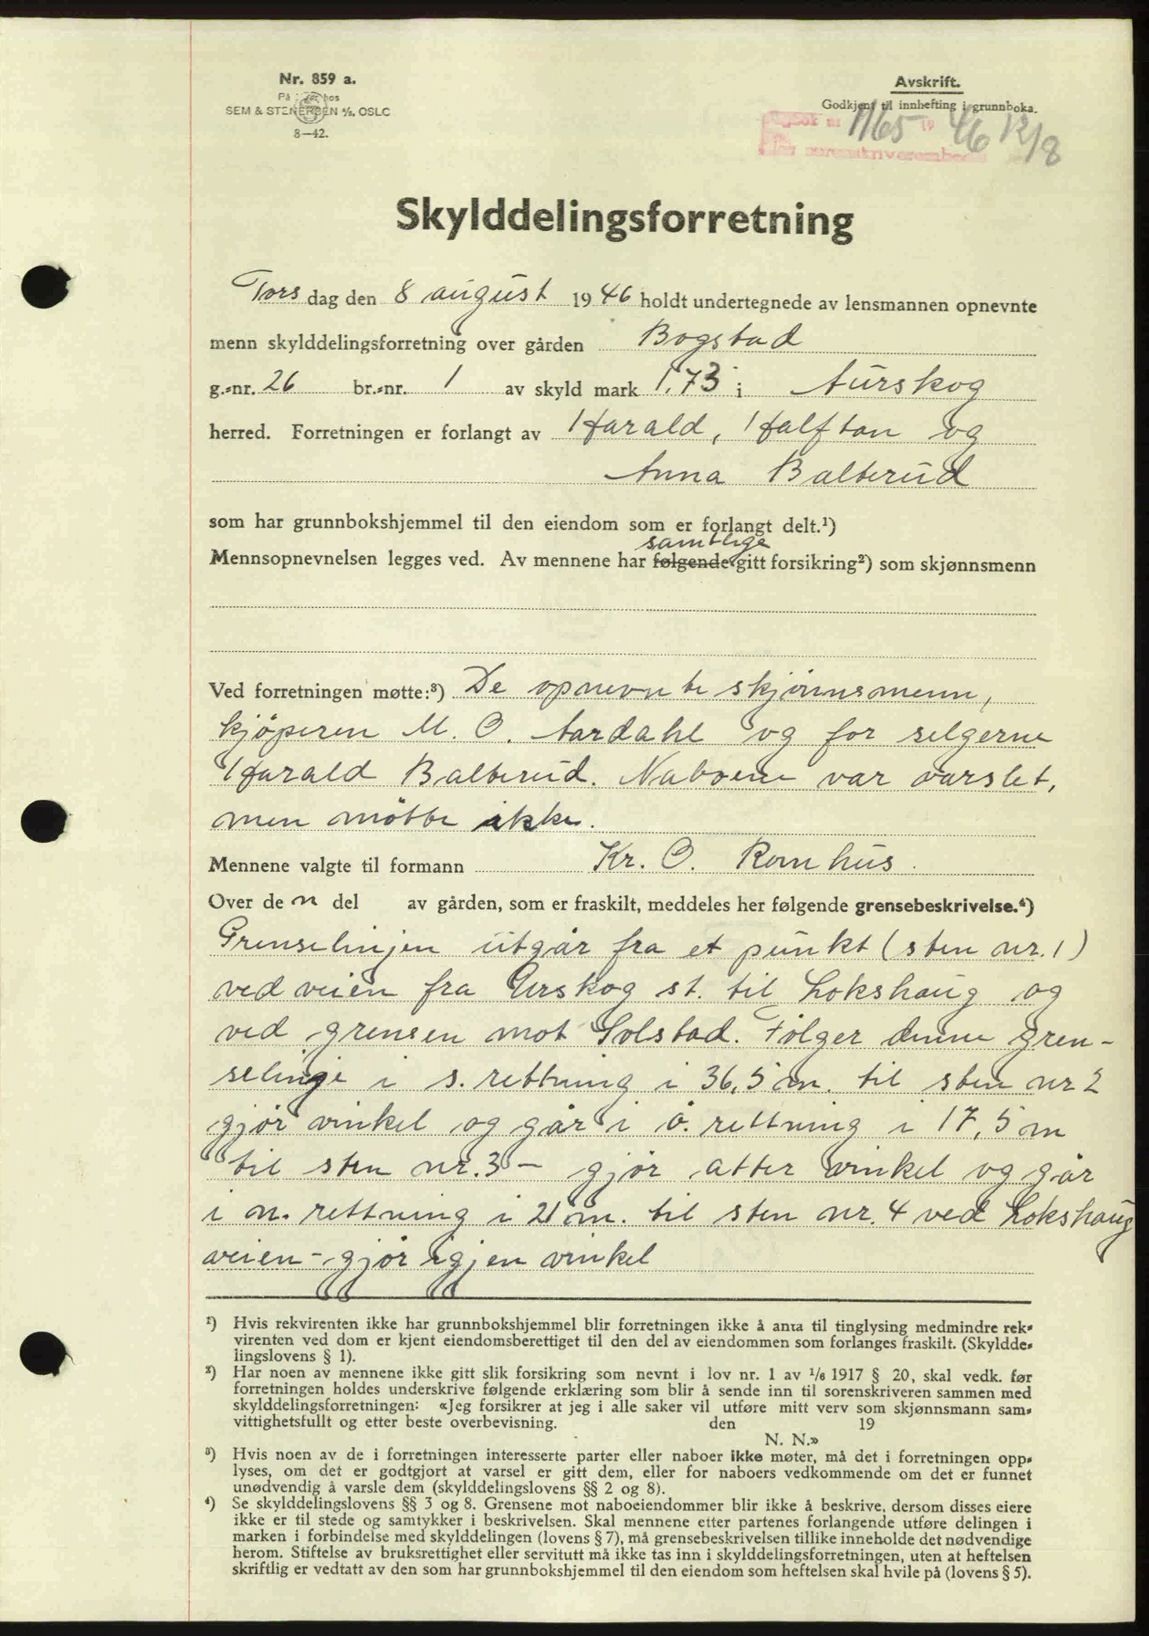 Nr. 859 a.
På lager hos
SEM & STENERSEN A/S, OSLO
8—42.
Avskrift.
Godkjent til innhefting i grunnboka.
Dagbok nr. 1165 19 46 12/8
sorenskriverembede
Skylddelingsforretning
Torsdag den 8 august 1946 holdt undertegnede av lensmannen opnevnte
menn skylddelingsforretning over gården Bogstad
g.-nr. 26 br.-nr. 1 av skyld mark 1.73 i Aurskog
herred. Forretningen er forlangt av Harald, Halftan og
Anna Balterud
som har grunnbokshjemmel til den eiendom som er forlangt delt.¹)
samtlige
Mennsopnevnelsen legges ved. Av mennene har følgende gitt forsikring²) som skjønnsmenn
Ved forretningen møtte:³) De opnevnte skjønnsmenn,
kjöperen M. O. Aardahl og for selgerne
Harald Balterud. Naboene var varslet,
men mötte ikke.
Mennene valgte til formann Kr. O. Romhus.
Over den del av gården, som er fraskilt, meddeles her følgende grensebeskrivelse.⁴)
Grenselinjen utgår fra et punkt (sten nr. 1)
ved veien fra Urskog st. til Lokshaug og
ved grensen mot Solstad. Følger denne gren-
selinje i s. rettning i 36,5 m. til sten nr 2
gjør vinkel og går i ö. rettning i 17,5 m
til sten nr. 3 — gjør atter vinkel og går
i n. rettning i 21 m. til sten nr. 4 ved Lokshaug
veien — gjör igjen vinkel
¹) Hvis rekvirenten ikke har grunnbokshjemmel blir forretningen ikke å anta til tinglysing medmindre rek-
virenten ved dom er kjent eiendomsberettiget til den del av eiendommen som forlanges fraskilt. (Skyldde-
lingslovens § 1).
²) Har noen av mennene ikke gitt slik forsikring som nevnt i lov nr. 1 av 1/6 1917 § 20, skal vedk. før
forretningen holdes underskrive følgende erklæring som blir å sende inn til sorenskriveren sammen med
skylddelingsforretningen: «Jeg forsikrer at jeg i alle saker vil utføre mitt verv som skjønnsmann sam-
vittighetsfullt og etter beste overbevisning. den 19
N. N.»
³) Hvis noen av de i forretningen interesserte parter eller naboer ikke møter, må det i forretningen opp-
lyses, om det er godtgjort at varsel er gitt dem, eller for naboers vedkommende om det er funnet
unødvendig å varsle dem (skylddelingslovens §§ 2 og 8).
⁴) Se skylddelingslovens §§ 3 og 8. Grensene mot naboeiendommer blir ikke å beskrive, dersom disses eiere
ikke er til stede og samtykker i beskrivelsen. Skal mennene etter partenes forlangende utføre delingen i
marken i forbindelse med skylddelingen (lovens § 7), må grensebeskrivelsen tillike inneholde det nødvendige
herom. Stiftelse av bruksrettighet eller servitutt må ikke tas inn i skylddelingsforretningen, uten at heftelsen
skriftlig er vedtatt av den som har grunnbokshjemmel til den eiendom som heftelsen skal hvile på (lovens § 5).